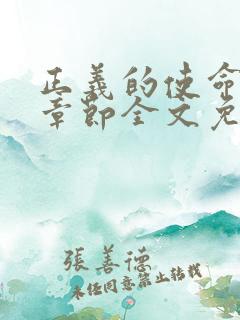 正義的使命
章節全文免
張善德
未經同意禁止轉載